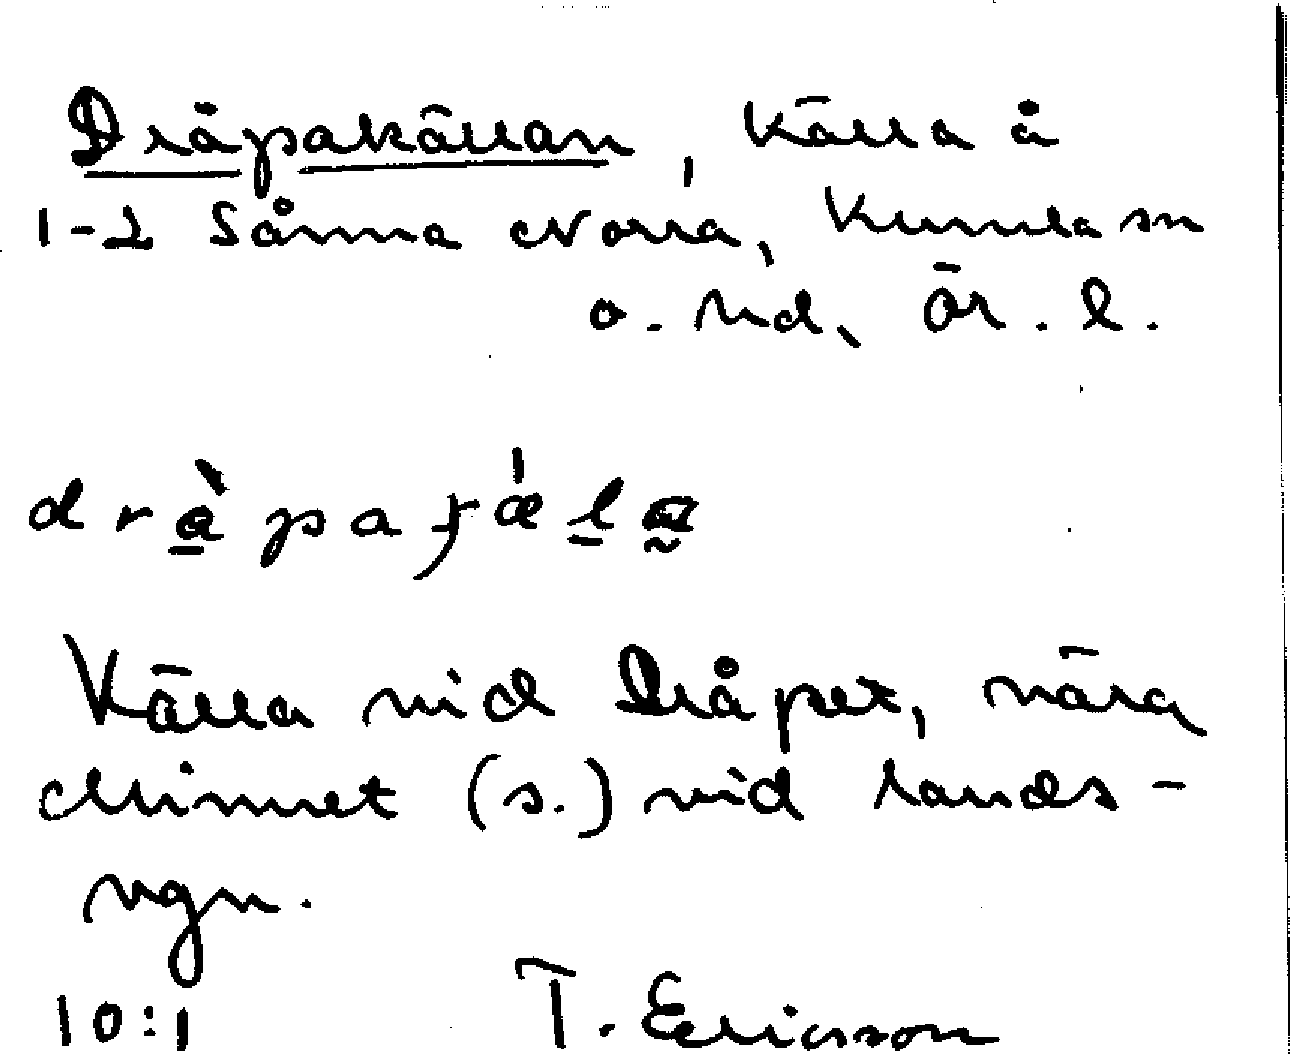 Dråpakällan, Källa å
1-2 Sånna Norra, Kumla sn
o. hd, Ör. l.
dràpaɟǽlа
Källa vid Dråpet, nära
Minnet (s.) vid lands-
vgn.
10:1 T. Ericsson